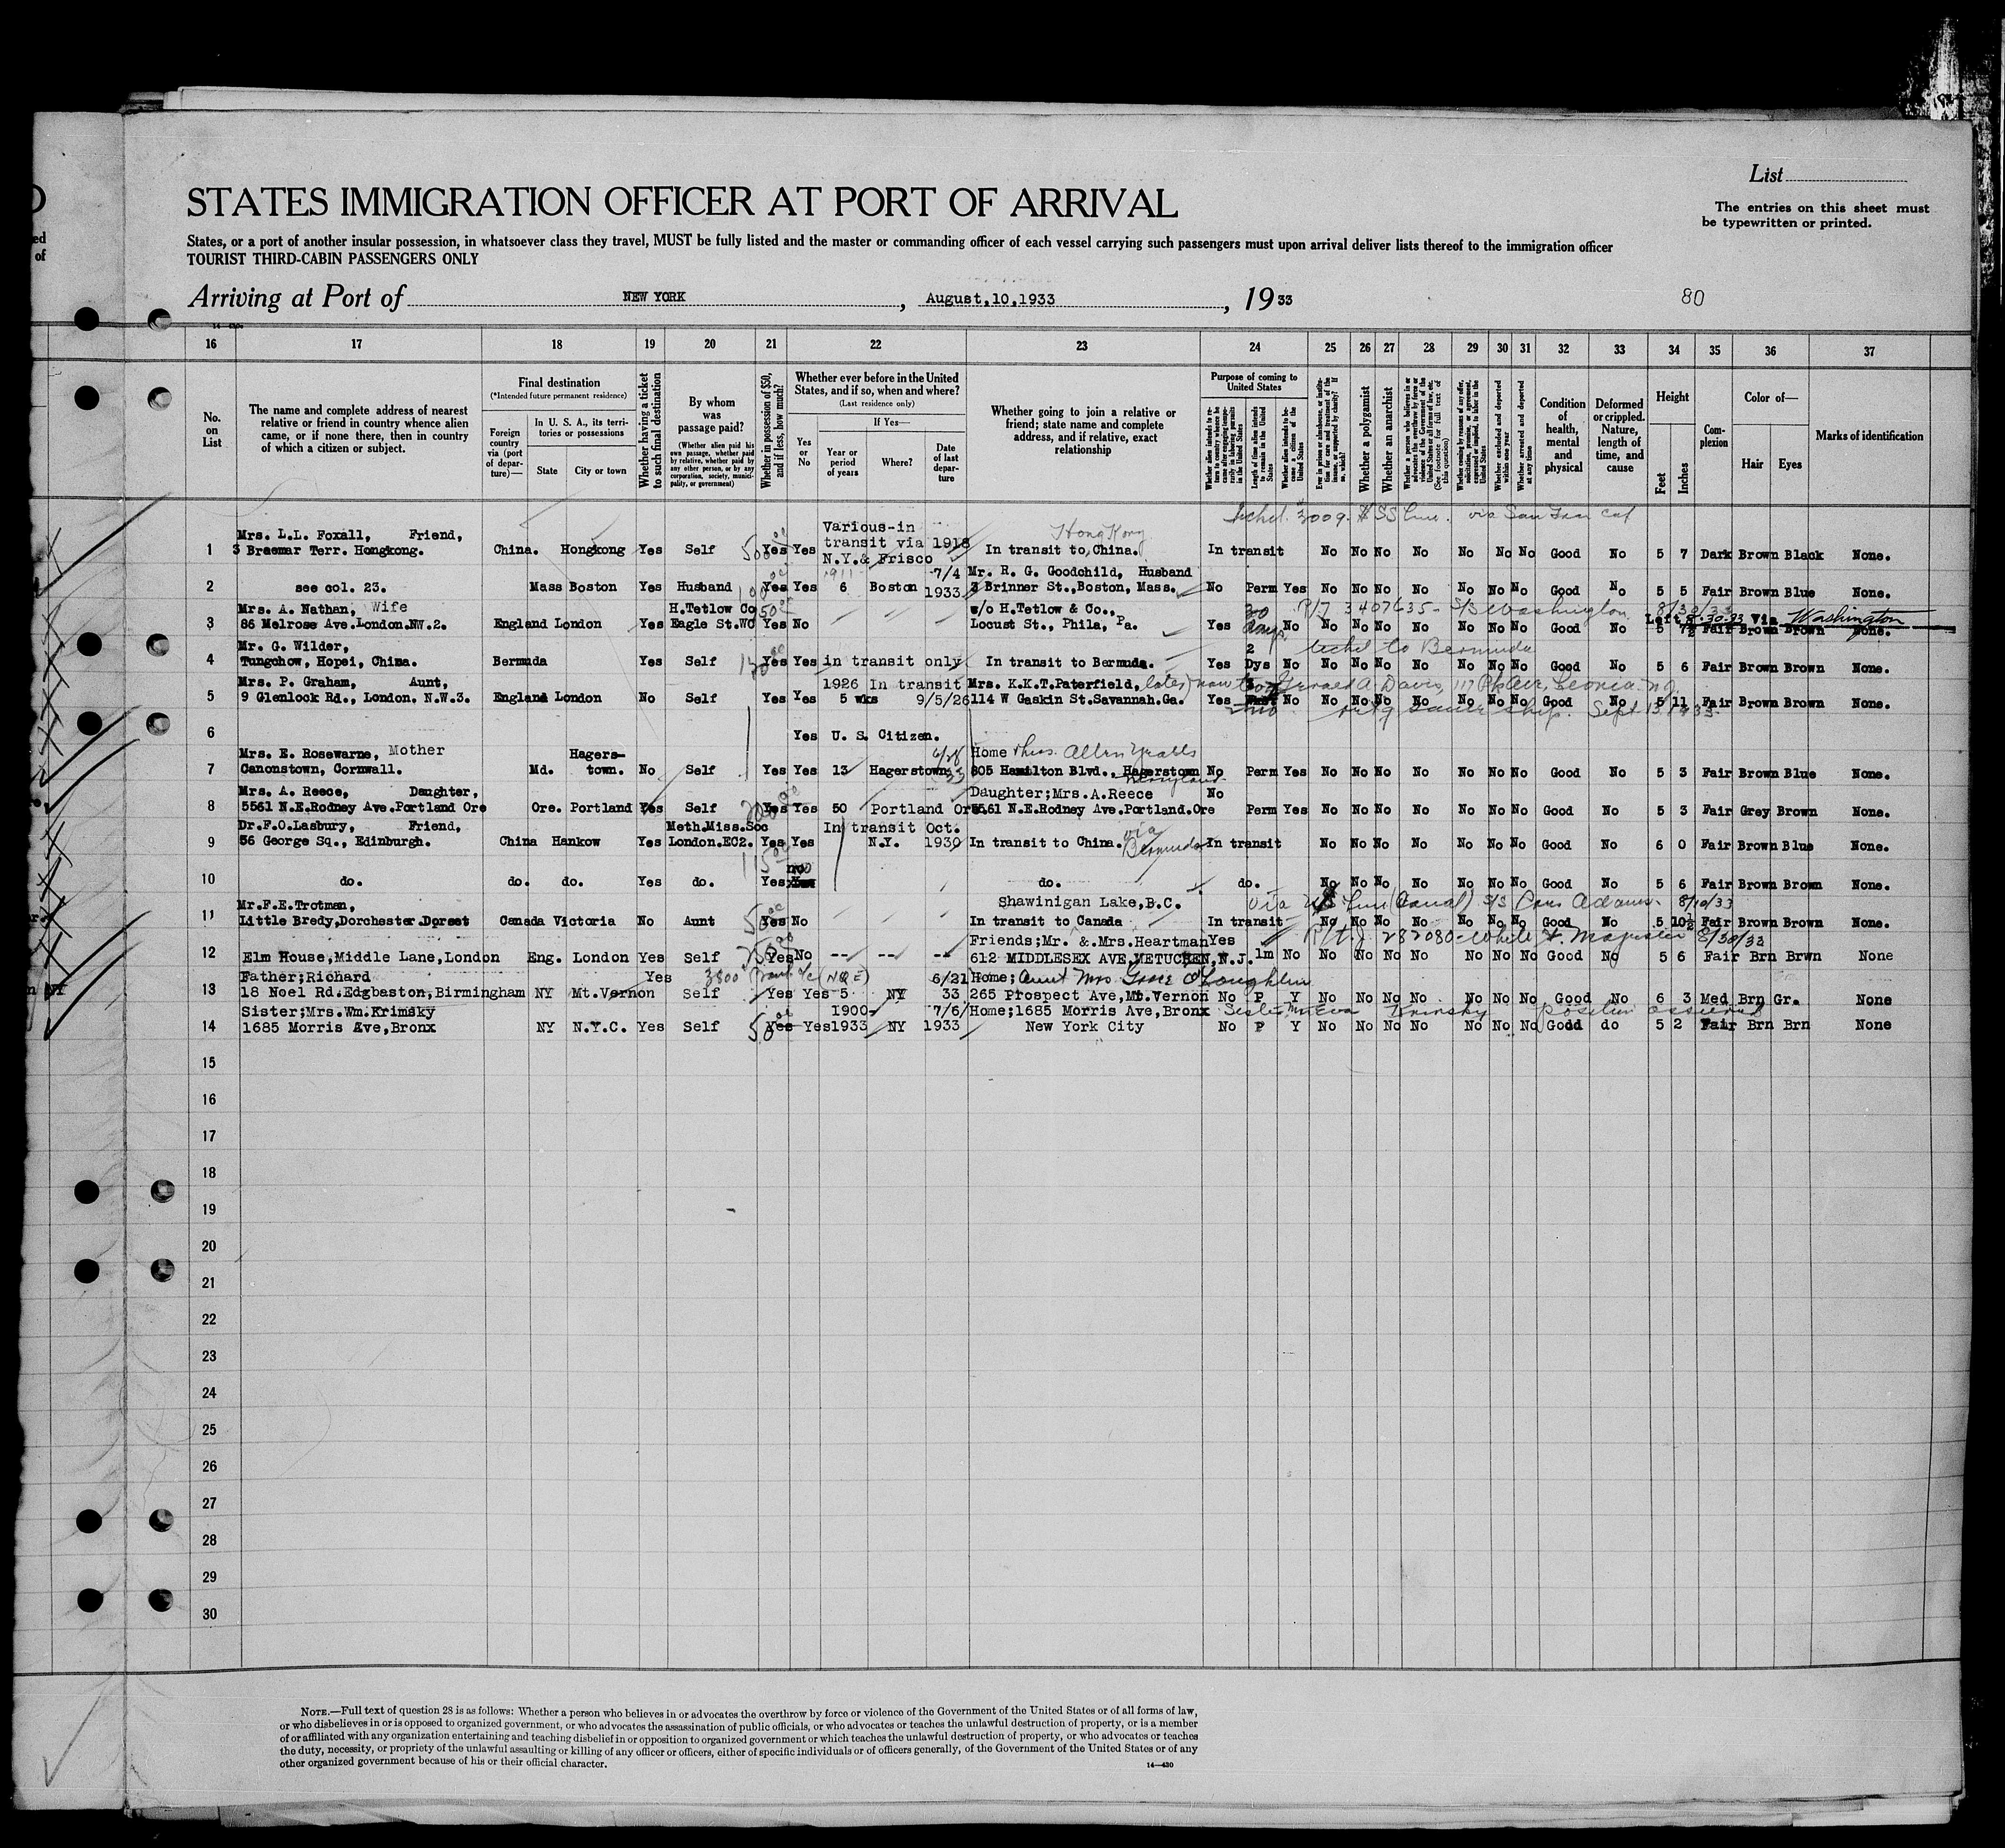 List
STATES IMMIGRATION OFFICER AT PORT OF ARRIVAL
The entries on this sheet must
be typewritten or printed.
States, or a port of another insular possession, in whatsoever class they travel, MUST be fully listed and the master or commanding officer of each vessel carrying such passengers must upon arrival deliver lists thereof to the immigration officer
TOURIST THIRD-CABIN PASSENGERS ONLY
Arriving at Port of NEW YORK, August,10,1933, 1933
80
16 17 18 19 20 21 22 23 24 25 26 27 28 29 30 31 32 33 34 35 36 37
No. on List
The name and complete address of nearest relative or friend in country whence alien came, or if none there, then in country of which a citizen or subject.
Final destination
(*Intended future permanent residence)
Foreign country via (port of departure)—
In U. S. A., its territories or possessions
State City or town
Whether having a ticket to such final destination
By whom was passage paid?
(Whether alien paid his own passage, whether paid by relative, whether paid by any other person, or by any corporation, society, municipality, or government)
Whether in possession of $50, and if less, how much?
Whether ever before in the United States, and if so, when and where?
(Last residence only)
Yes or No
If Yes—
Year or period of years Where? Date of last departure
Whether going to join a relative or friend; state name and complete address, and if relative, exact relationship
Purpose of coming to United States
Length of time alien intends to remain in the United States
Whether alien intends to become a citizen of the United States
Whether a polygamist
Whether an anarchist
Whether excluded and deported within one year
Whether arrested and deported at any time
Condition of health, mental and physical
Deformed or crippled. Nature, length of time, and cause
Height
Feet Inches
Complexion
Color of—
Hair Eyes
Marks of identification
via San Fran Cal
1 Mrs. L.L. Foxall, Friend,
3 Braemar Terr. Hongkong. China. Hongkong Yes Self Yes Yes Various-in transit via 1918 N.Y.& Frisco Hong Kong In transit to China. In transit No No No No No No No Good No 5 7 Dark Brown Black None.
2 see col. 23. Mass Boston Yes Husband Yes Yes 6 Boston 7/4 1933 Mr. R. G. Goodchild, Husband
3 Brinner St.,Boston, Mass. No Perm Yes No No No No No No No Good No 5 5 Fair Brown Blue None.
3 Mrs. A. Nathan, Wife
86 Melrose Ave.London.NW.2. England London Yes H.Tetlow Co Eagle St.WC Yes No w/o H.Tetlow & Co.,
Locust St., Phila, Pa. Yes Days No No No No No No No No Good No 5 7½ Fair Brown Brown None.
S/S Washington 8/30/33
Left 8-30-33 Via Washington
4 Mr. G. Wilder,
Tungchow, Hopei, China. Bermuda Yes Self Yes Yes in transit only In transit to Bermuda. Yes 2 Dys No No No No No No No No Good No 5 6 Fair Brown Brown None.
to Bermuda
5 Mrs. P. Graham, Aunt,
9 Glenlock Rd., London. N.W.3. England London No Self Yes Yes 1926 In transit 5 wks 9/5/26 Mrs. K.K.T.Paterfield,
114 W Gaskin St.Savannah.Ga. Yes No No No No No No No No Good No 5 11 Fair Brown Brown None.
Gerald A. Davis, 117 Pk Ave, Leonia NJ.
6 Yes U. S. Citizen.
7 Mrs. E. Rosewarne, Mother
Canonstown, Cornwall. Md. Hagers-town. No Self Yes Yes 13 Hagerstown Home
805 Hamilton Blvd., Hagerstown Maryland No Perm Yes No No No No No No No Good No 5 3 Fair Brown Blue None.
8 Mrs. A. Reece, Daughter,
5561 N.E.Rodney Ave.Portland Ore Ore. Portland Yes Self Yes Yes 50 Portland Ore Daughter;Mrs.A.Reece
5561 N.E.Rodney Ave.Portland.Ore No Perm Yes No No No No No No No Good No 5 3 Fair Grey Brown None.
9 Dr.F.O.Lasbury, Friend,
56 George Sq., Edinburgh. China Hankow Yes Meth.Miss.Soc London.EC2. Yes Yes In transit Oct. N.Y. 1930 In transit to China. via Bermuda In transit No No No No No No No Good No 6 0 Fair Brown Blue None.
10 do. do. do. Yes do. Yes no do. do. No No No No No No No Good No 5 6 Fair Brown Brown None.
11 Mr.F.E.Trotman,
Little Bredy,Dorchester.Dorset Canada Victoria No Aunt Yes No Shawinigan Lake,B.C.
In transit to Canada In transit No No No No No No No Good No 5 10½ Fair Brown Brown None.
8/10/33
12 Elm House,Middle Lane,London Eng. London Yes Self Yes No -- -- -- Friends;Mr. &.Mrs.Heartman
612 MIDDLESEX AVE,METUCHEN,N.J. Yes 1m No No No No No No No No Good No 5 6 Fair Brn Brwn None
8/30/33
13 Father;Richard
18 Noel Rd.Edgbaston,Birmingham NY Mt.Vernon Yes Self Yes Yes 5 NY 6/21 33 Home; Aunt Mrs Grace O'Loughlin
265 Prospect Ave,Mt.Vernon No P Y No No No No No No No Good No 6 3 Med Brn Gr. None
14 Sister;Mrs.Wm.Krimsky
1685 Morris Ave,Bronx NY N.Y.C. Yes Self Yes Yes 1900-1933 NY 7/6/1933 Home;1685 Morris Ave,Bronx
New York City No P Y No No No No No No No Good do 5 2 Fair Brn Brn None
15
16
17
18
19
20
21
22
23
24
25
26
27
28
29
30
NOTE.—Full text of question 28 is as follows: Whether a person who believes in or advocates the overthrow by force or violence of the Government of the United States or of all forms of law,
or who disbelieves in or is opposed to organized government, or who advocates the assassination of public officials, or who advocates or teaches the unlawful destruction of property, or is a member
of or affiliated with any organization entertaining and teaching disbelief in or opposition to organized government or which teaches the unlawful destruction of property, or who advocates or teaches
the duty, necessity, or propriety of the unlawful assaulting or killing of any officer or officers, either of specific individuals or of officers generally, of the Government of the United States or of any
other organized government because of his or their official character.
14—430